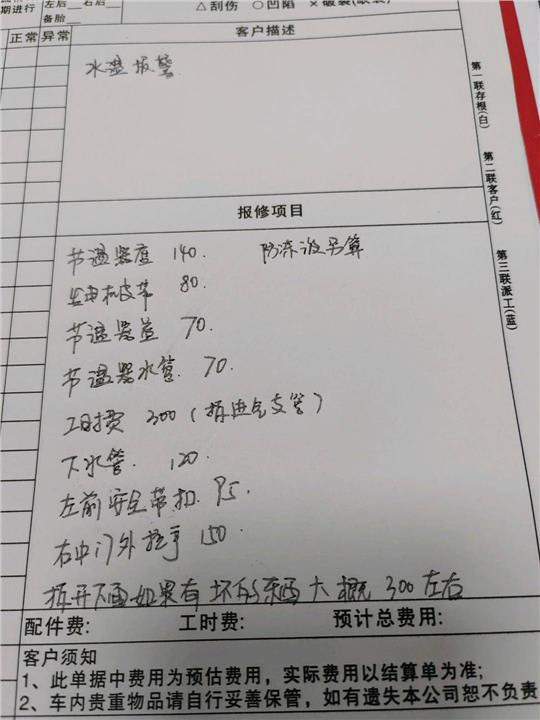 期进行
左后__右后__
备胎__
△刮伤 ○凹陷 ×破裂(
正常 异常
客户描述
水温报警
第一联存根(白)
第二联客户(红)
第三联派工(蓝)
报修项目
节温器座 140. 防冻液另算
发电机皮带 80.
节温器盖 70.
节温器水管. 70.
工时费 300 (拆进气支管)
下水管. 120.
左前安全带扣. 95.
右中门外拉手 150.
拆开下面如果有坏的东西大概300左右
配件费: 工时费: 预计总费用:
客户须知
1、此单据中费用为预估费用，实际费用以结算单为准;
2、车内贵重物品请自行妥善保管，如有遗失本公司恕不负责